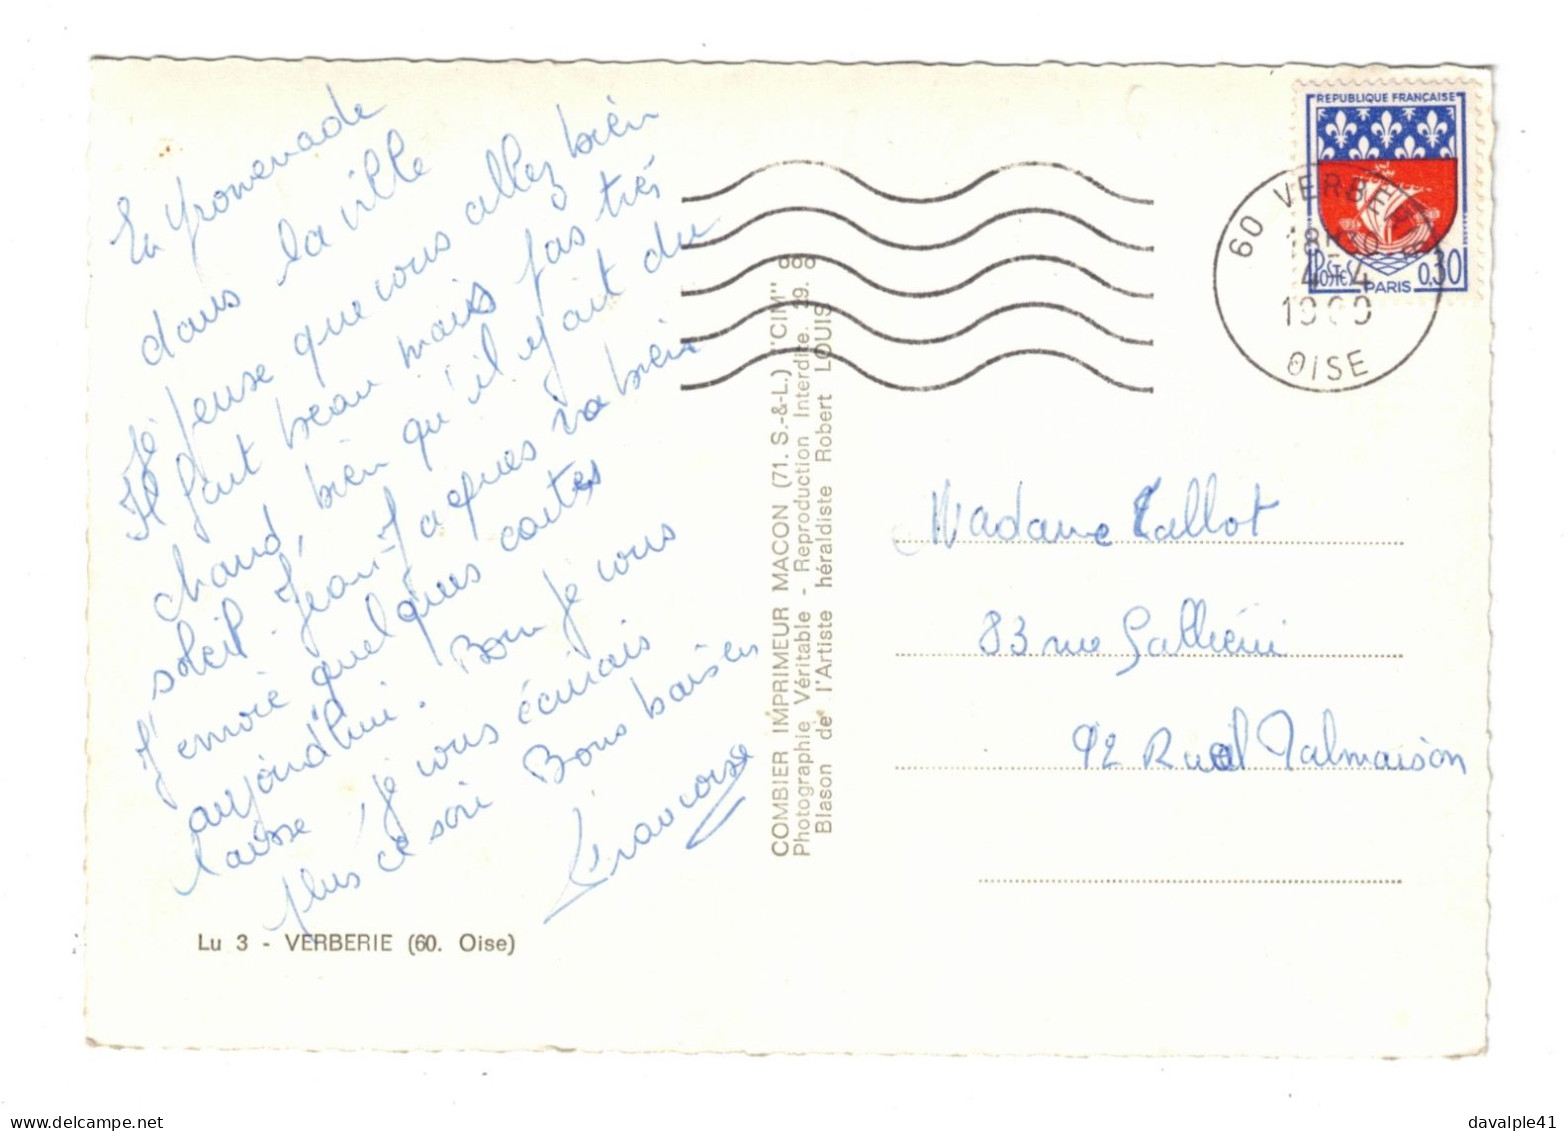 En promenade
dans la ville
Je pense que vous allez bien
Il fait beau mais pas très
chaud, bien qu'il y ait du
soleil. Jean-Jacques va bien
J'envoie quelques cartes
aujourd'hui. Bon je vous
laisse, je vous écrirais
plus ce soir Bons baisers
Françoise
Lu 3 - VERBERIE (60. Oise)
COMBIER IMPRIMEUR MACON (71. S.-&-L.) "CIM"
Photographie Véritable - Reproduction Interdite.
Blason de l'Artiste héraldiste Robert LOUIS
REPUBLIQUE FRANÇAISE
POSTES PARIS 0,30
60 VERBERIE
18H
4-4
OISE
Madame Callot
83 rue Galliéni
92 Rueil Malmaison
davalple41